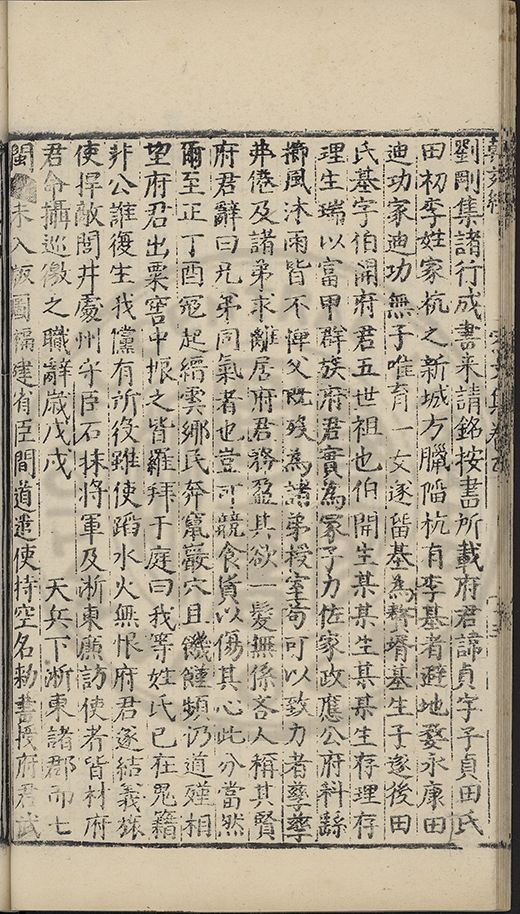 劉剛集諸行成書来請銘按書所載府君諱貞字子貞田氏
田初李姓家杭之新城方臘陷杭有李基者避地婺永康田
迪功家迪功無子唯育一女遂留基為贅壻基生子遂後田
氏基字伯開府君五世祖也伯開生某某生某某生存理存
理生瑞以富甲群族府君實為冢子力佐家政應公府科繇
櫛風沐雨皆不憚父既殁為諸弟授室苟可以致力者孳孳
弗倦及諸弟求離居府君務盈其欲一髮無係吝人稱其賢
府君辭曰兄弟同氣者也豈可競食貨以傷其心此分當然
爾至正丁酉冦起縉雲鄉民奔竄巖穴且饑饉頻仍道殣相
望府君出粟窖中振之皆羅拜于庭曰我等姓氏已在鬼籍
非公誰復生我儻有所役雖使蹈水火無恨府君遂結義旅
使捍敵閭井處州守臣石抹將軍及浙東廉訪使者皆材府
君令攝巡徼之職辭歲戊戌 天兵下浙東諸郡而七
閩 未入版圖福建省臣間道遣使持空名勑書授府君武